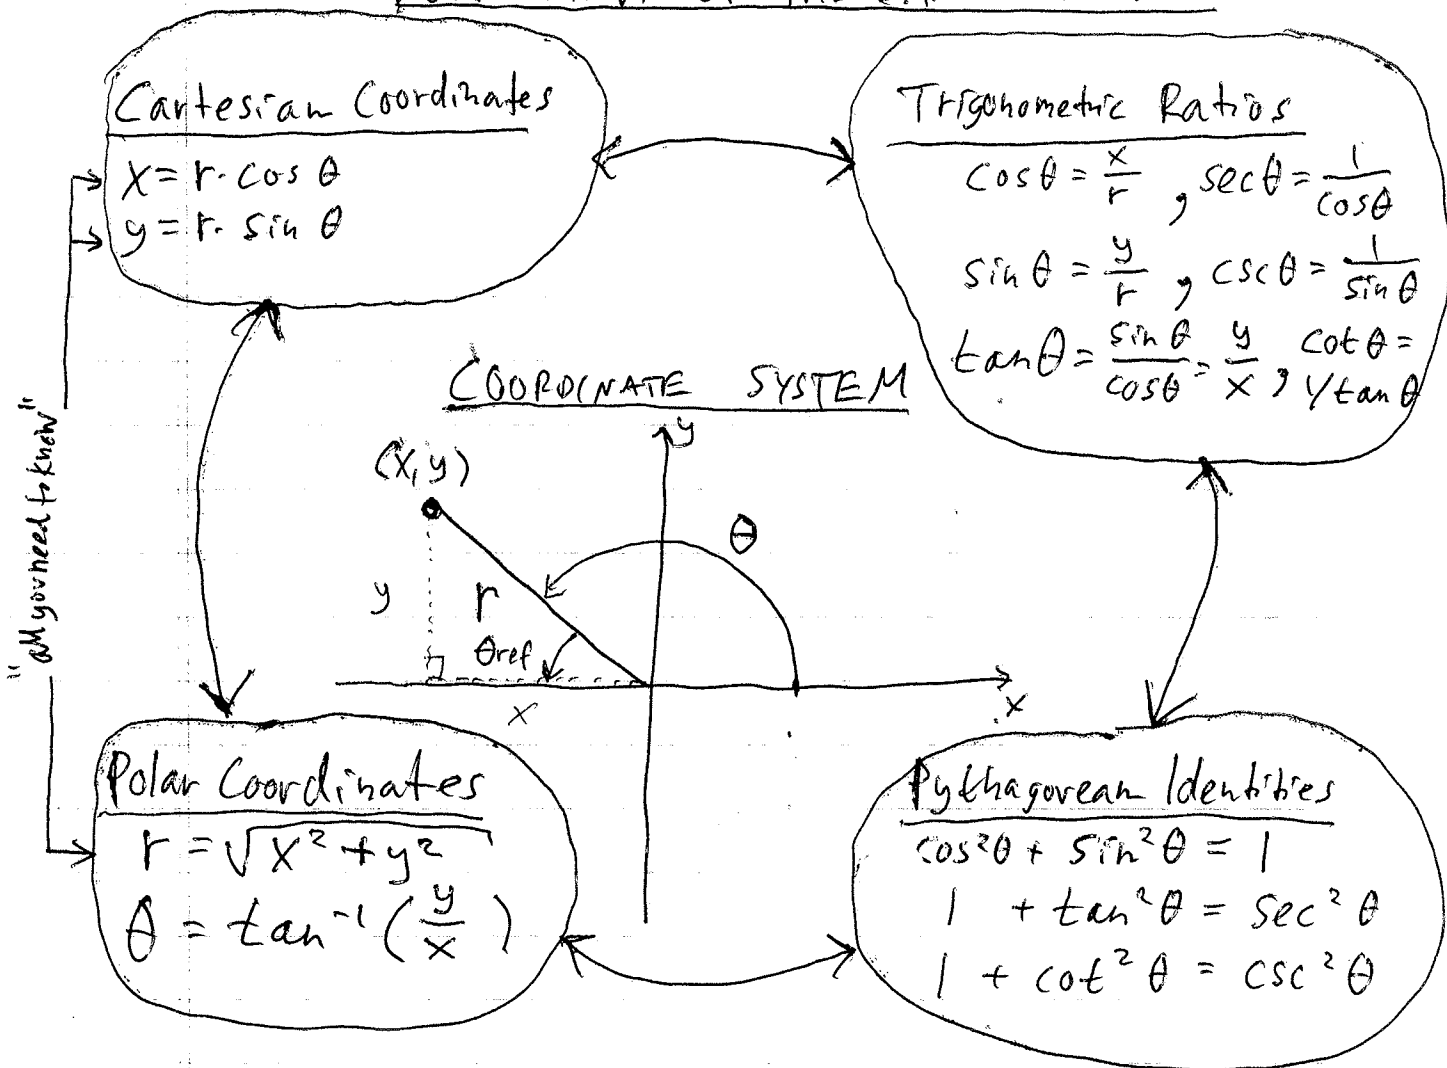 Cartesian Coordinates
x = r · cos θ
y = r · sin θ
Trigonometric Ratios
cos θ = x/r , sec θ = 1/cos θ
sin θ = y/r , csc θ = 1/sin θ
tan θ = sin θ/cos θ = y/x , cot θ =
1/tan θ
"all you need to know"
COORDINATE SYSTEM
y
(x, y)
θ
y
r
θref
x
x
Polar Coordinates
r = √x² + y²
θ = tan⁻¹ (y/x)
Pythagorean Identities
cos²θ + sin²θ = 1
1 + tan²θ = sec²θ
1 + cot²θ = csc²θ